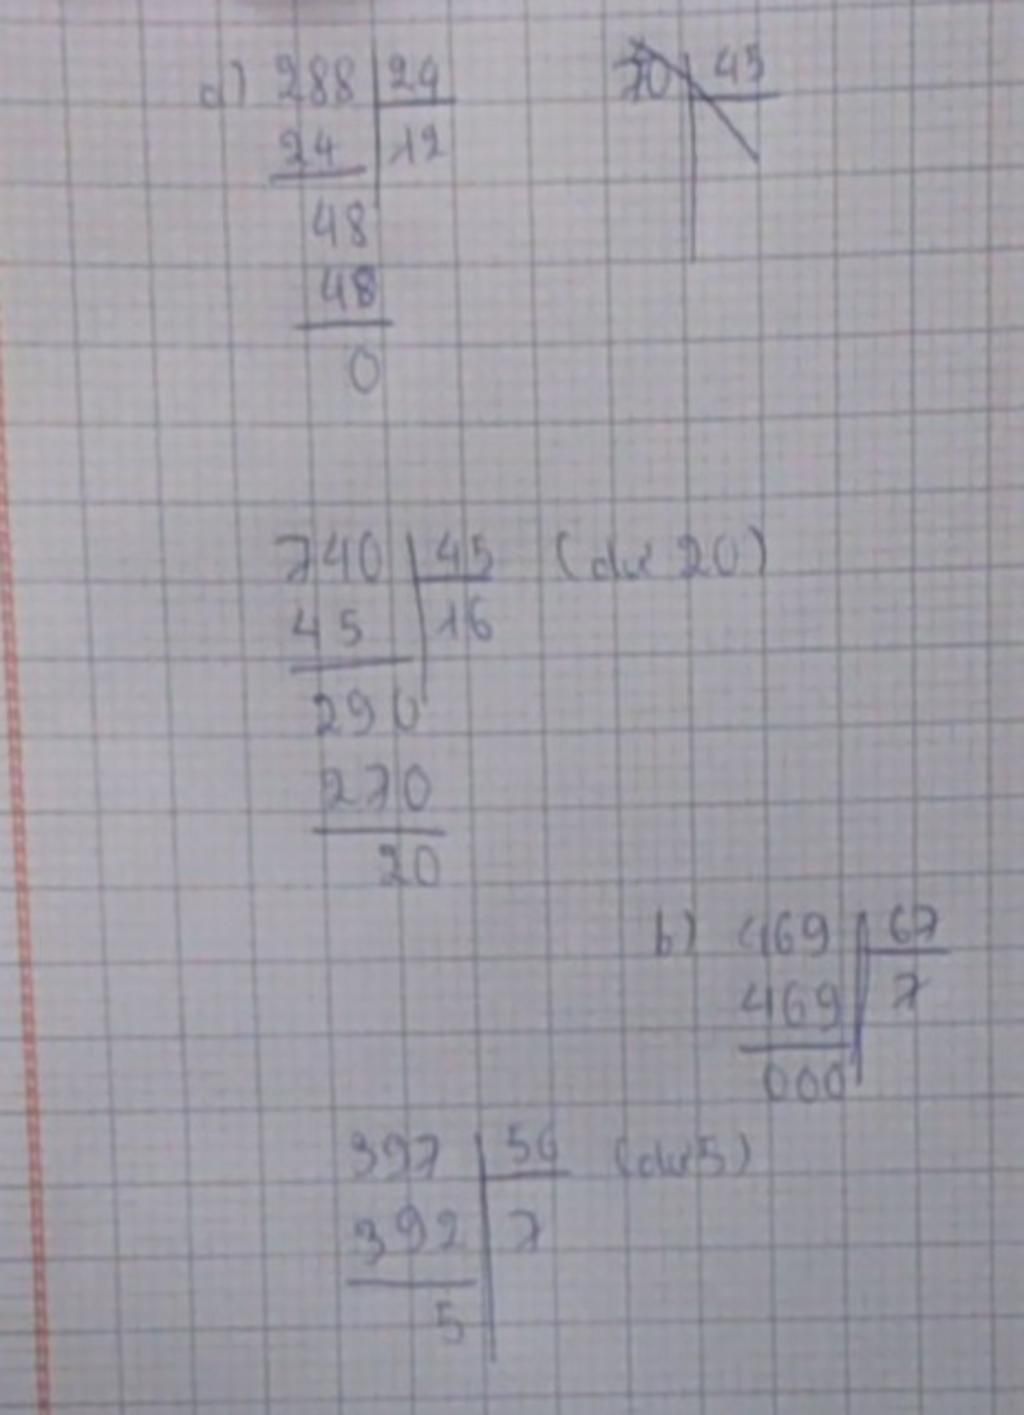 a) 288 24
24 12
48
48
0
740 45 (dư 20)
45 16
290
270
20
b) 469 67
469 7
000
397 56 (dư 5)
392 7
5